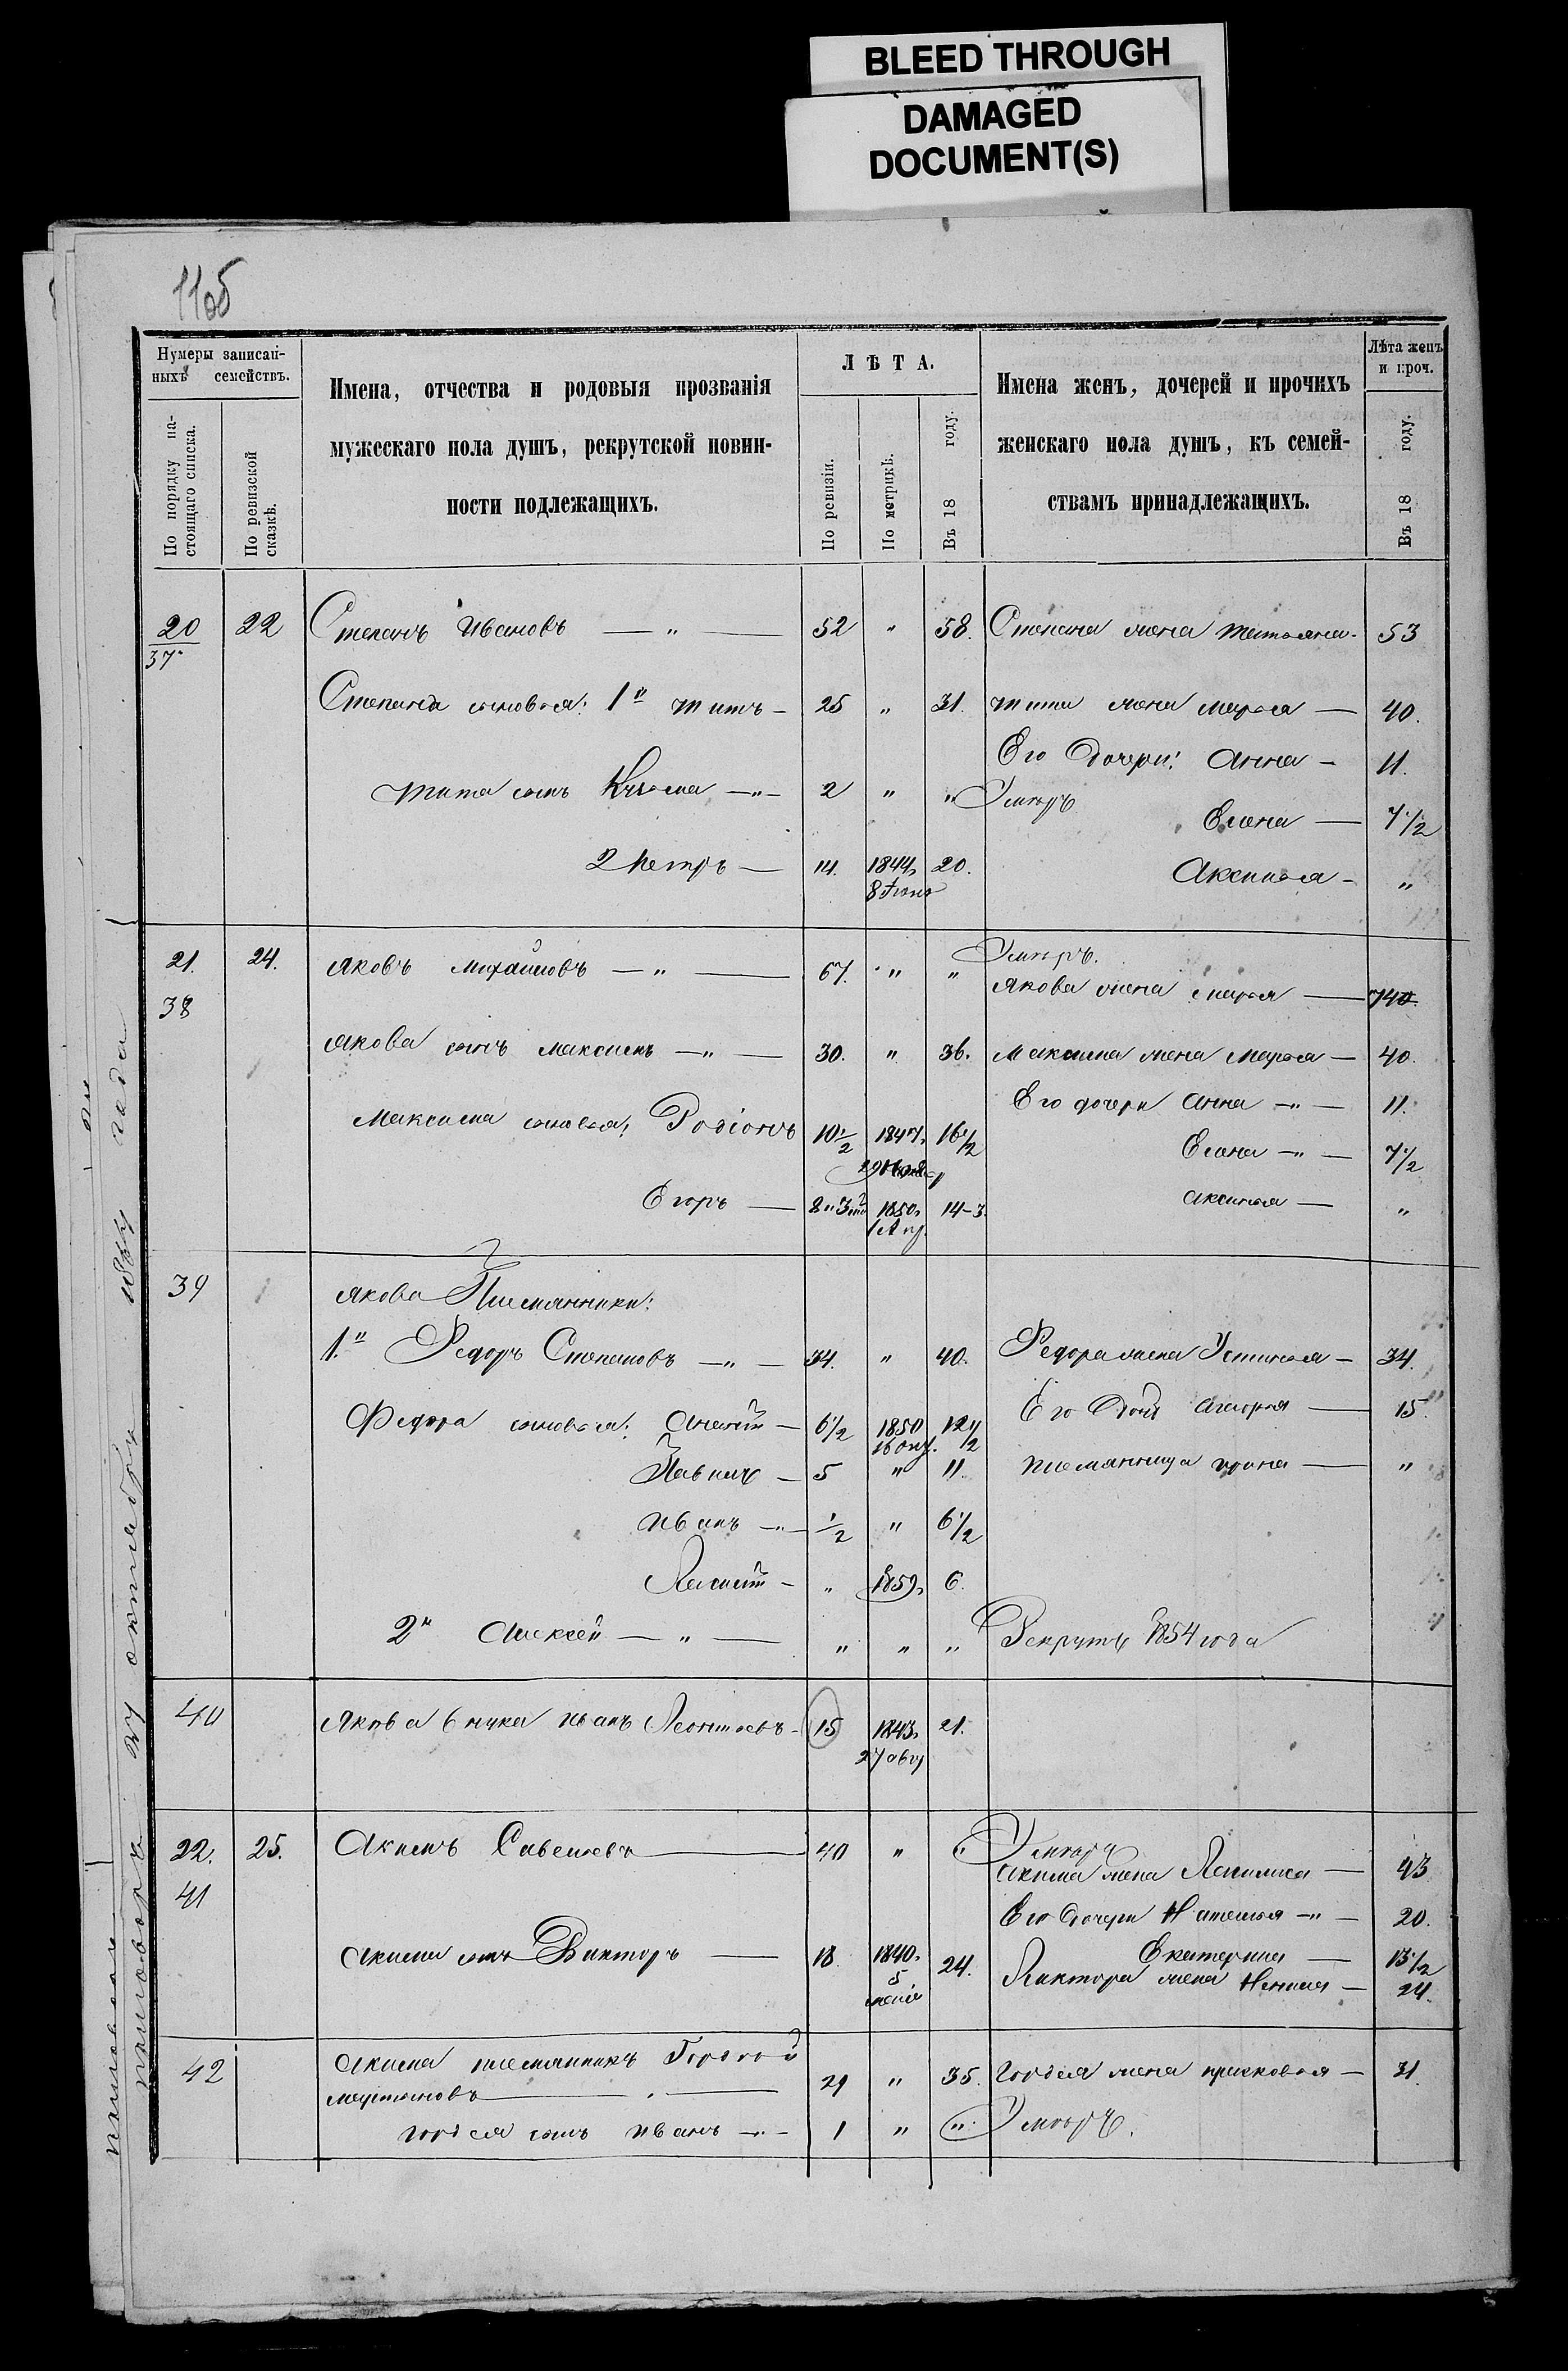 BLEED THROUGH
DAMAGED
DOCUMENT(S)
11об
Нумеры записан-
ныхъ семействъ.
По порядку на-
стоящаго списка.
По ревизской
сказкѣ.
Имена, отчества и родовыя прозванія
мужескаго пола душъ, рекрутской повин-
ности подлежащихъ.
ЛѢТА.
По ревизіи.
По метрикѣ.
Въ 18 году.
Имена женъ, дочерей и прочихъ
женскаго пола душъ, къ семей-
ствамъ принадлежащихъ.
Лѣта женъ
и проч.
Въ 18 году.
20 22 Степанъ Ивановъ — " — 52 " 58. Степана жена Татьяна - 53
37
Степана сыновья: 1й Титъ - 25 " 31. Тита жена Марья — 40.
Его дочери: Анна - 11.
Тита сынъ Кузьма —"— 2 " " Умеръ
Елена — 7 1/2
2 Петръ — 14. 1844, 20.
8 Іюня
Аксинья - "
21. 24. Яковъ Михайловъ — " — 67. " " Умеръ.
38 Якова жена Марья — 74
Якова сынъ Максимъ —"— 30. " 36. Максима жена Марья — 40.
Его дочери Анна —"— 11.
Максима сыновья: Родіонъ 10 1/2 1847, 16 1/2
Елена —"— 7 1/2
Егоръ — 8 " 3 1850, 14-3.
1 Апр.
Аксинья — "
39 Якова Племянники:
1.й Федоръ Степановъ —"— 34. " 40. Федора жена Устинья - 34.
Федора сыновья: 6 1/2 1850 12 1/2
16 окт.
Его дочь 15.
5 " 11. племянница — "
Иванъ —"— 1/2 " 6 1/2
- " 1859, 6.
2й Алексей — " — " " " Рекрутъ 1854 года
40 Якова внукъ Иванъ Леонтьевъ - 15 1843, 21.
27 авгу
22. 25. Акимъ Савельевъ — 40 " " Умеръ
41 Акима жена — 43
Его дочери Наталья —"— 20.
Екатерина — 13 1/2
Акима сынъ Викторъ — 18. 1840, 24.
5
Виктора жена — 24.
42 Акима племянникъ Гордей
Мартыновъ — " — 29 " 35. Гордея жена Прасковья — 31
Гордея сынъ Иванъ —"— 1 " " Умеръ.